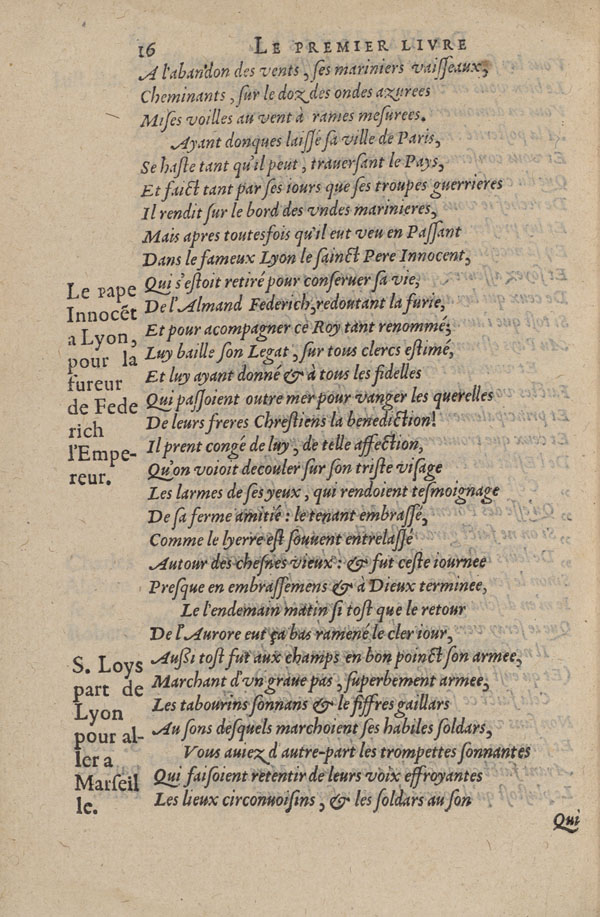 16 LE PREMIER LIVRE
A l'abandon des vents, ses mariniers vaisseaux,
Cheminants, sur le doz des ondes azurees
Mises voilles au vent à rames mesurees.
Ayant donques laissé sa ville de Paris,
Se haste tant qu'il peut, trauersant le Pays,
Et faict tant par ses iours que ses troupes guerrieres
Il rendit sur le bord des vndes marinieres,
Mais apres toutesfois qu'il eut veu en Passant
Dans le fameux Lyon le sainct Pere Innocent,
Qui s'estoit retiré pour conseruer sa vie,
De l'Almand Federich, redoutant la furie,
Et pour acompagner ce Roy tant renommé;
Luy baille son Legat, sur tous clercs estimé,
Et luy ayant donné & à tous les fidelles
Qui passoient outre mer pour vanger les querelles
De leurs freres Chrestiens la benediction!
Il prent congé de luy, de telle affection,
Qu'on voioit decouler sur son triste visage
Les larmes de ses yeux, qui rendoient tesmoignage
De sa ferme amitié : le tenant embrassé,
Comme le lyerre est souuent entrelassé
Autour des chesnes vieux : & fut ceste iournee
Presque en embrassemens & à Dieux terminee,
Le l'endemain matin si tost que le retour
De l'Aurore eut ça bas ramené le cler iour,
Aussi tost fut aux champs en bon poinct son armee,
Marchant d'vn graue pas, superbement armee,
Les tabourins sonnans & le fiffres gaillars
Au sons desquels marchoient ses habiles soldars,
Vous auiez d autre-part les trompettes sonnantes
Qui faisoient retentir de leurs voix effroyantes
Les lieux circonuoisins, & les soldars au son
Qui
Le pape
Innocẽt
a Lyon,
pour la
fureur
de Fede
rich
l'Empe-
reur.
S. Loys
part de
Lyon
pour al-
ler a
Marseil
le.